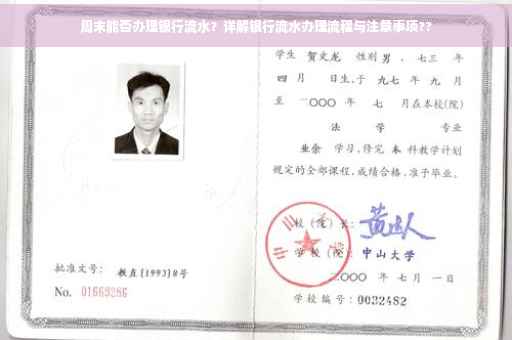 周末能否办理银行流水？详解银行流水办理流程与注意事项??
学生 贺文龙 性别 男，七三 年
四 月 日生，于 九七 年 九 月
至 二〇〇〇 年 七 月在本校(院)
法 学 专业
业余 学习，修完 本 科教学计划
规定的全部课程，成绩合格，准予毕业。
校(院)长：
学校(院)：中山大学
二〇〇〇 年 七 月 一 日
学校编号：0032482
批准文号：教直(1993)8号
No. 01669286